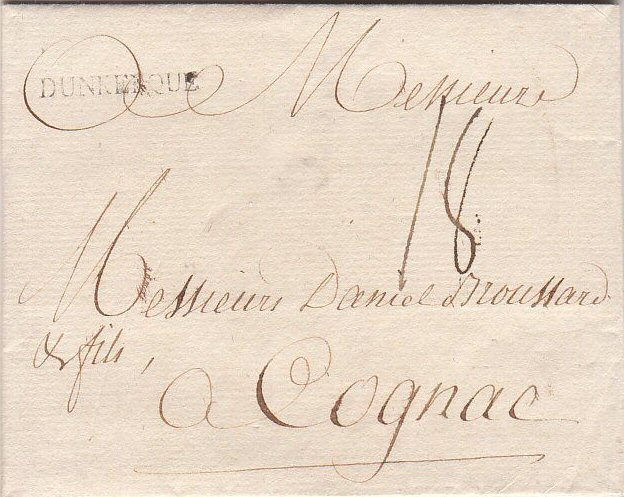 DUNKERQUE
A Messieurs
18
Messieurs Daniel Broussard
& fils,
a Cognac